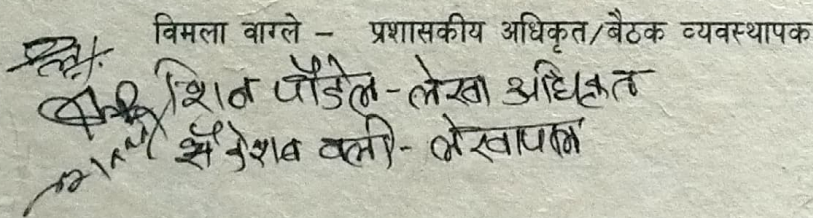 विमला वाग्ले - प्रशासकीय अधिकृत/बैठक व्यवस्थापक
शिव पौडेल - लेखा अधिकृत
केशव वली - लेखापाल